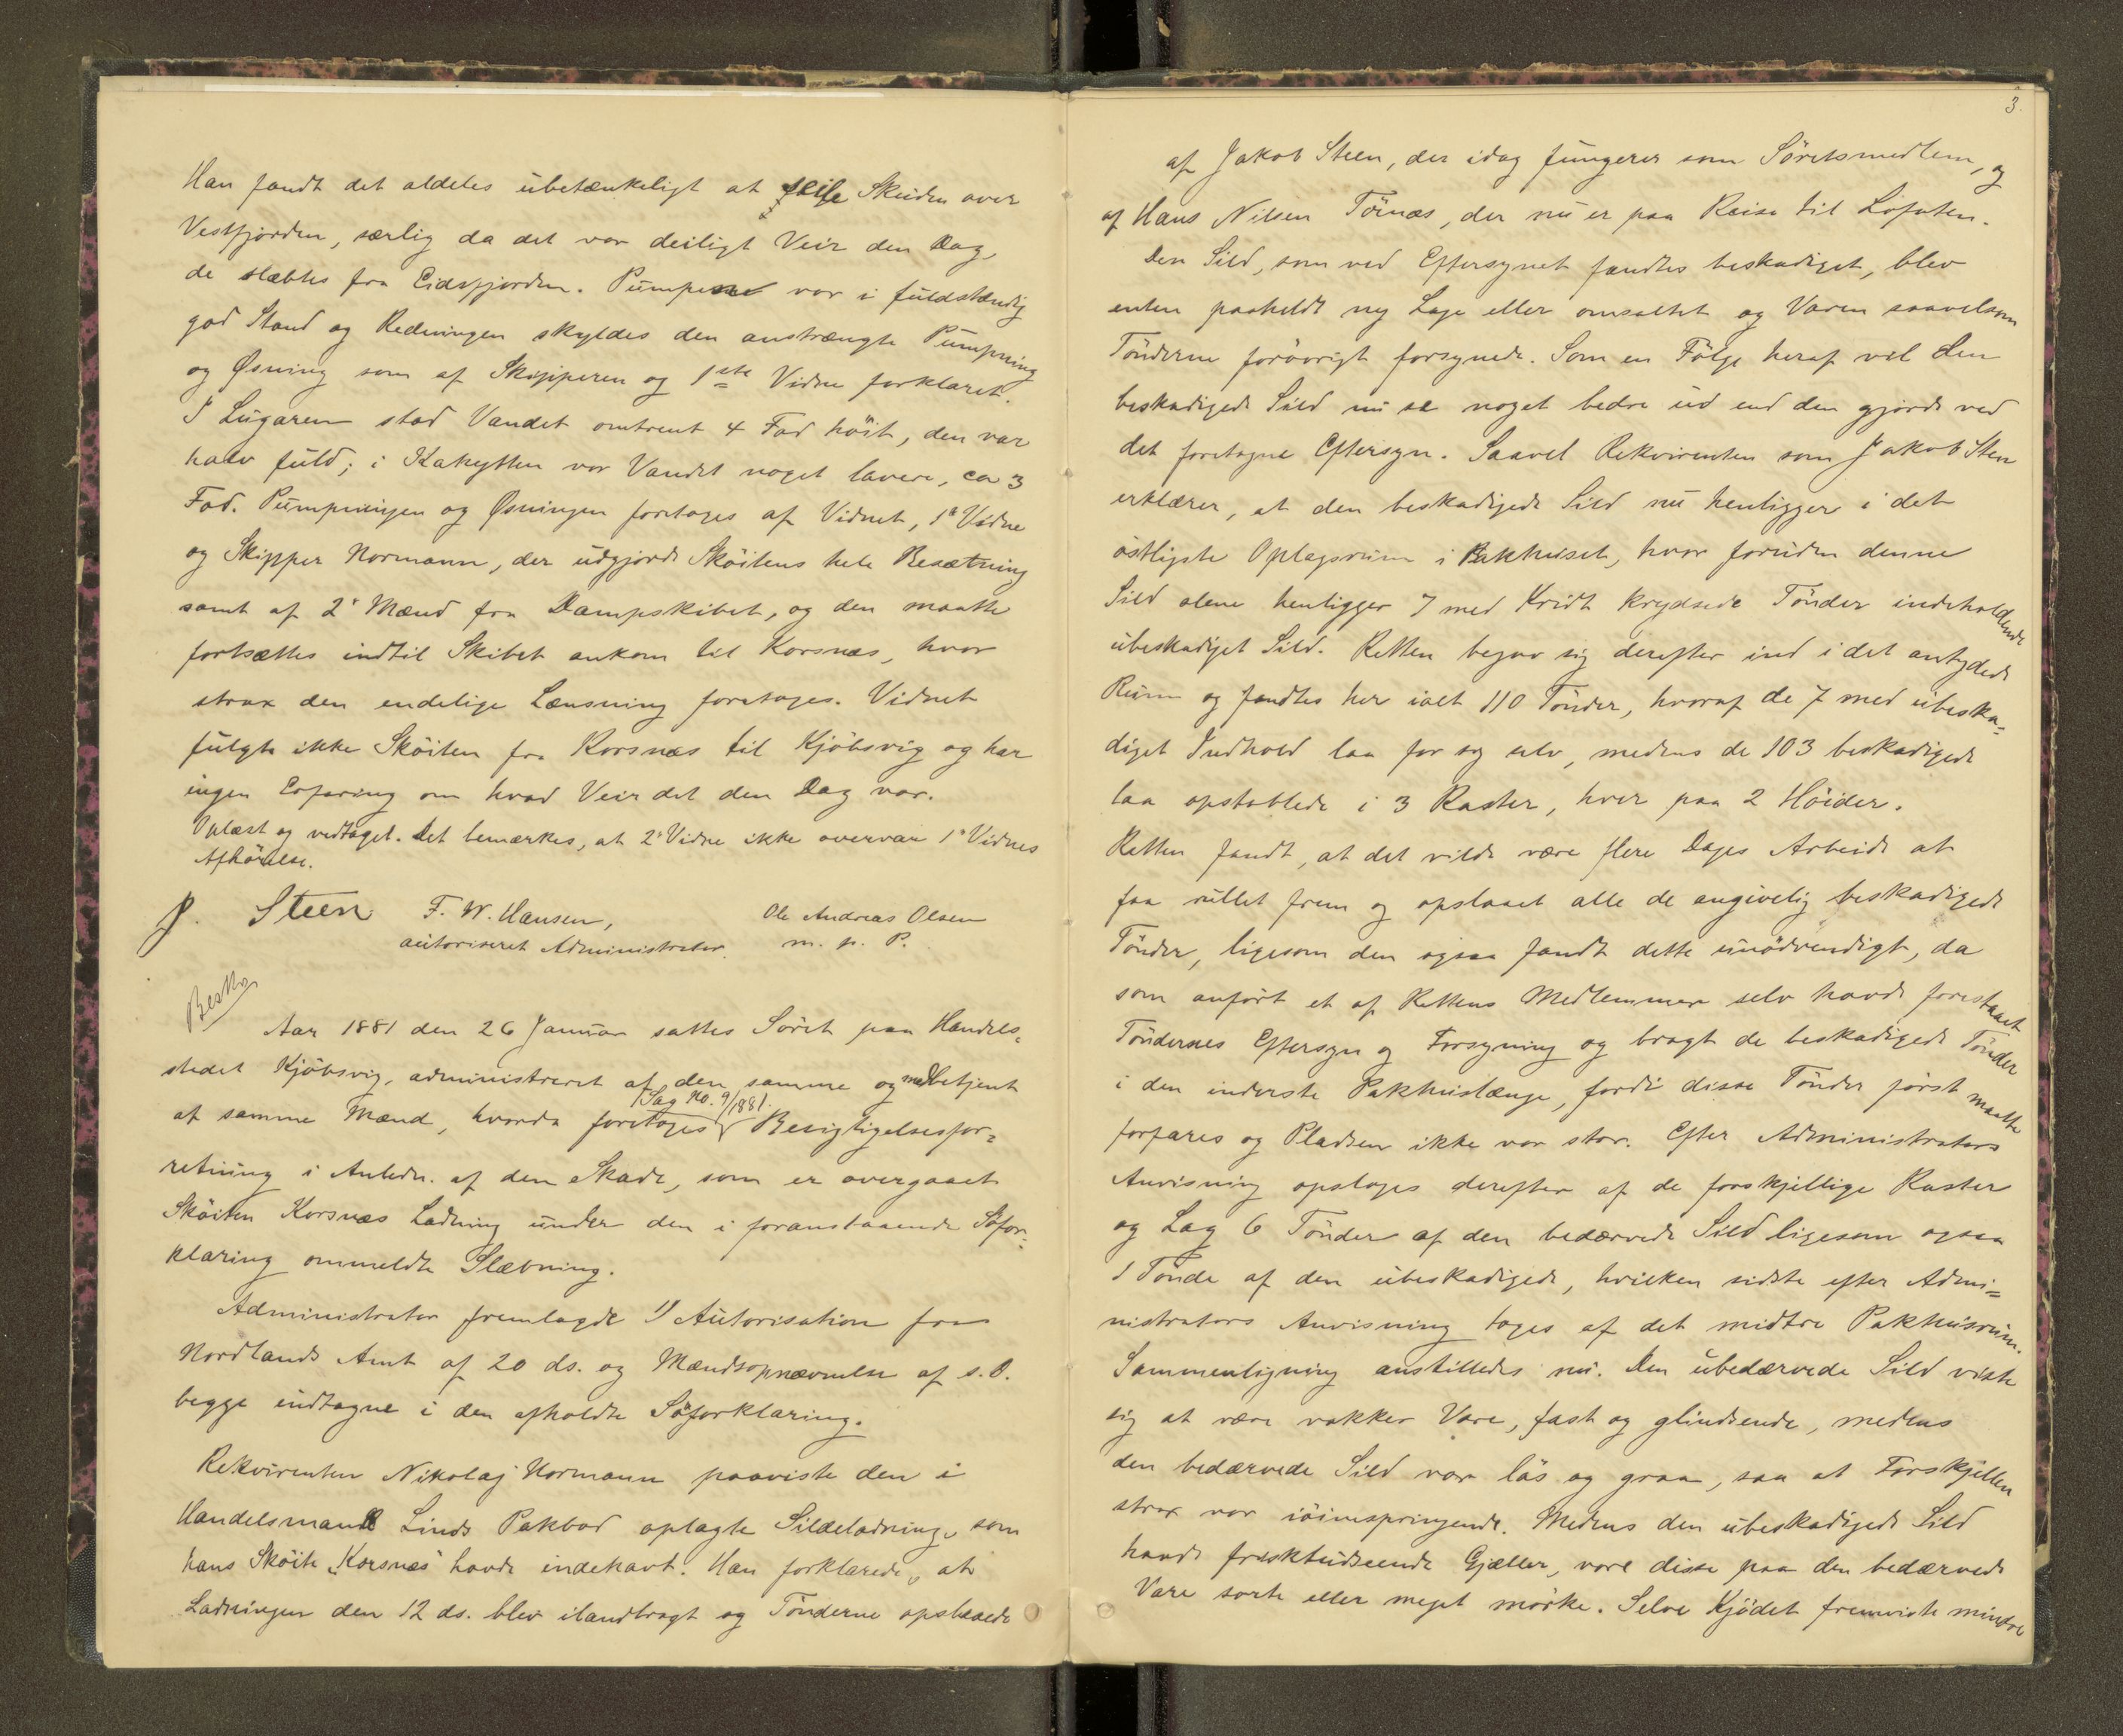 Han fandt det aldeles ubetænkeligt at seile Skuiden over
Vestfjorden, særlig da det var deiligt Veir den Dag,
de slæbtes fra Eidsfjorden. Pumpene var i fuldstændig
god Stand og Redningen skyldes den anstrængte Pumpning
og Øsning som af Skipperen og 1ste Vidne forklaret.
I Lugaren stod Vandet omtrent 4 Fod höit, den var
halv fuld; i Kahytten var Vandet noget lavere, ca 3
Fod. Pumpningen og Øsningen foretoges af Vidnet, 1e Vidne
og Skipper Normann, der udgjorde Sköitens hele Besætning
samt af 2de Mænd fra Dampskibet, og den maatte
fortsættes indtil Skibet ankom til Korsnæs, hvor
strax den endelige Lænsning foretoges. Vidnet
fulgte ikke Sköiten fra Korsnæs til Kjöbsvig og har
ingen Erfaring om hvad Veir det den Dag var.
Oplæst og vedtaget. Det bemærkes, at 2t Vidne ikke overvar 1e Vidnes
Afhörelse.
J. Steen F. W. Hansen, Ole Andreas Olsen
autoriseret Administrator. m. p. P.
Besktg
Aar 1881 den 26 Januar sattes Söret paa Handels-
stedet Kjöbsvig, administreret af den samme og medbetjent
Sag No. 9/1881.
af samme Mænd, hvorda foretoges Besigtigelsesfor-
retning i Anledn. af den Skade, som er overgaaet
Sköiten Korsnæs Ladning under den i foranstaaende Söfor-
klaring ommeldte Slæbning.
Administrator fremlagde 1) Autorisation fra
Nordlands Amt af 20 ds. og Mændsopnævnelse af s. D.
begge indtagne i den afholdte Söforklaring.
Rekvirenten Nikolaj Normann paaviste den i
Handelsmand Linds Pakbod oplagte Sildeladning, som
hans Sköite "Korsnæs" havde indehavt. Han forklarede, at
Ladningen den 12 ds. blev ilandbragt og Tönderne opslaaede
3.
af Jakob Steen, der idag fungerer som Söretsmedlem, og
af Hans Nilsen Törnæs, der nu er paa Reise til Lofoten.
Den Sild, som ved Eftersynet fandtes beskadiget, blev
enten paaheldt ny Lage eller omsaltet og Varen saavelsom
Tönderne forövrigt forsynede. Som en Fölge heraf vil den
beskadigede Sild nu se noget bedre ud end den gjorde ved
det foretagne Eftersyn. Saavel Rekvirenten som Jakob Sten
erklærer, at den beskadigede Sild nu henligger i det
östligste Oplagsrum i Pakhuset, hvor foruden denne
Sild alene henligger 7 med Kridt krydsede Tönder indeholdende
ubeskadiget Sild. Retten begav sig derefter ind i det antydede
Rum og fandtes her ialt 110 Tönder, hvoraf de 7 med ubeska-
diget Indhold laa for sig selv, medens de 103 beskadigede
laa opstablede i 3 Raster, hver paa 2 Höider.
Retten fandt, at det vilde være flere Dages Arbeide at
faa rullet frem og opslaaet alle de angivelig beskadigede
Tönder, ligesom den ogsaa fandt dette unödvendigt, da
som anfört et af Rettens Medlemmer selv havde forestaaet
Töndernes Eftersyn og Forsyning og bragt de beskadigede Tönder
i den inderste Pakhuslænge, fordi disse Tönder först maatte
forfares og Pladsen ikke var stor. Efter Administrators
Anvisning opstoges derefter af de forskjellige Raster
og Lag 6 Tönder af den bedærvede Sild ligesom ogsaa
1 Tönde af den ubeskadigede, hvilken sidste efter Admi-
nistrators Anvisning toges af det midtre Pakhusrum.
Sammenligning anstilledes nu. Den ubedærvede Sild viste
sig at være vakker Vare, fast og glindsende, medens
den bedærvede Sild var lös og graa, saa at Forskjellen
strax var iöinespringende. Medens den ubeskadigede Sild
havde frisktudseende Gjæller, vare disse paa den bedærvede
Vare sorte eller meget mörke. Selve Kjödet fremviste mindre